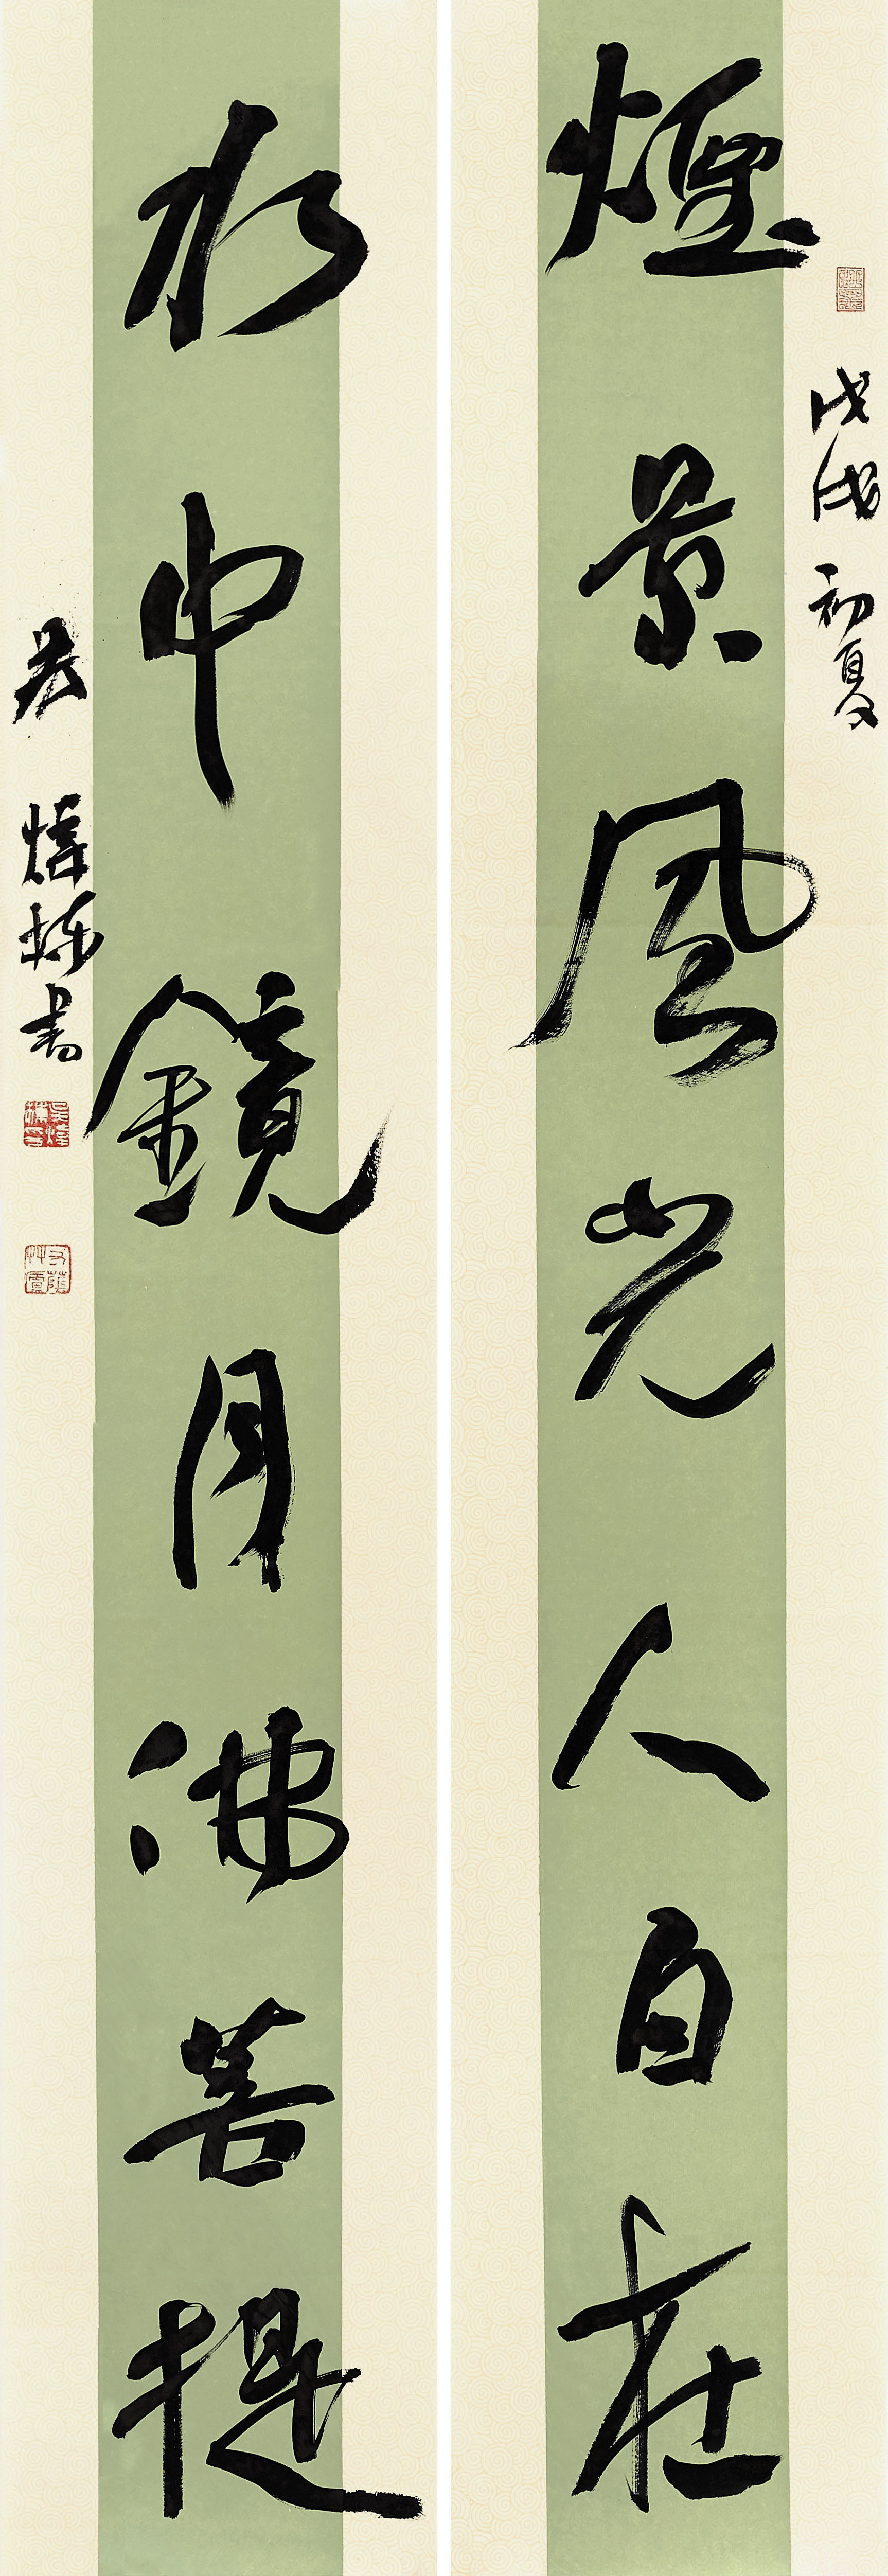 煙景風光人自在
戊戌初夏
水中鏡月佛菩提
吳煒棟書